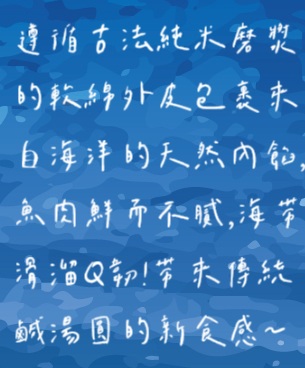 遵循古法純米磨漿
的軟綿外皮包裹來
自海洋的天然內餡,
魚肉鮮而不膩,海帶
滑溜Q韌!帶來傳統
鹹湯圓的新食感~